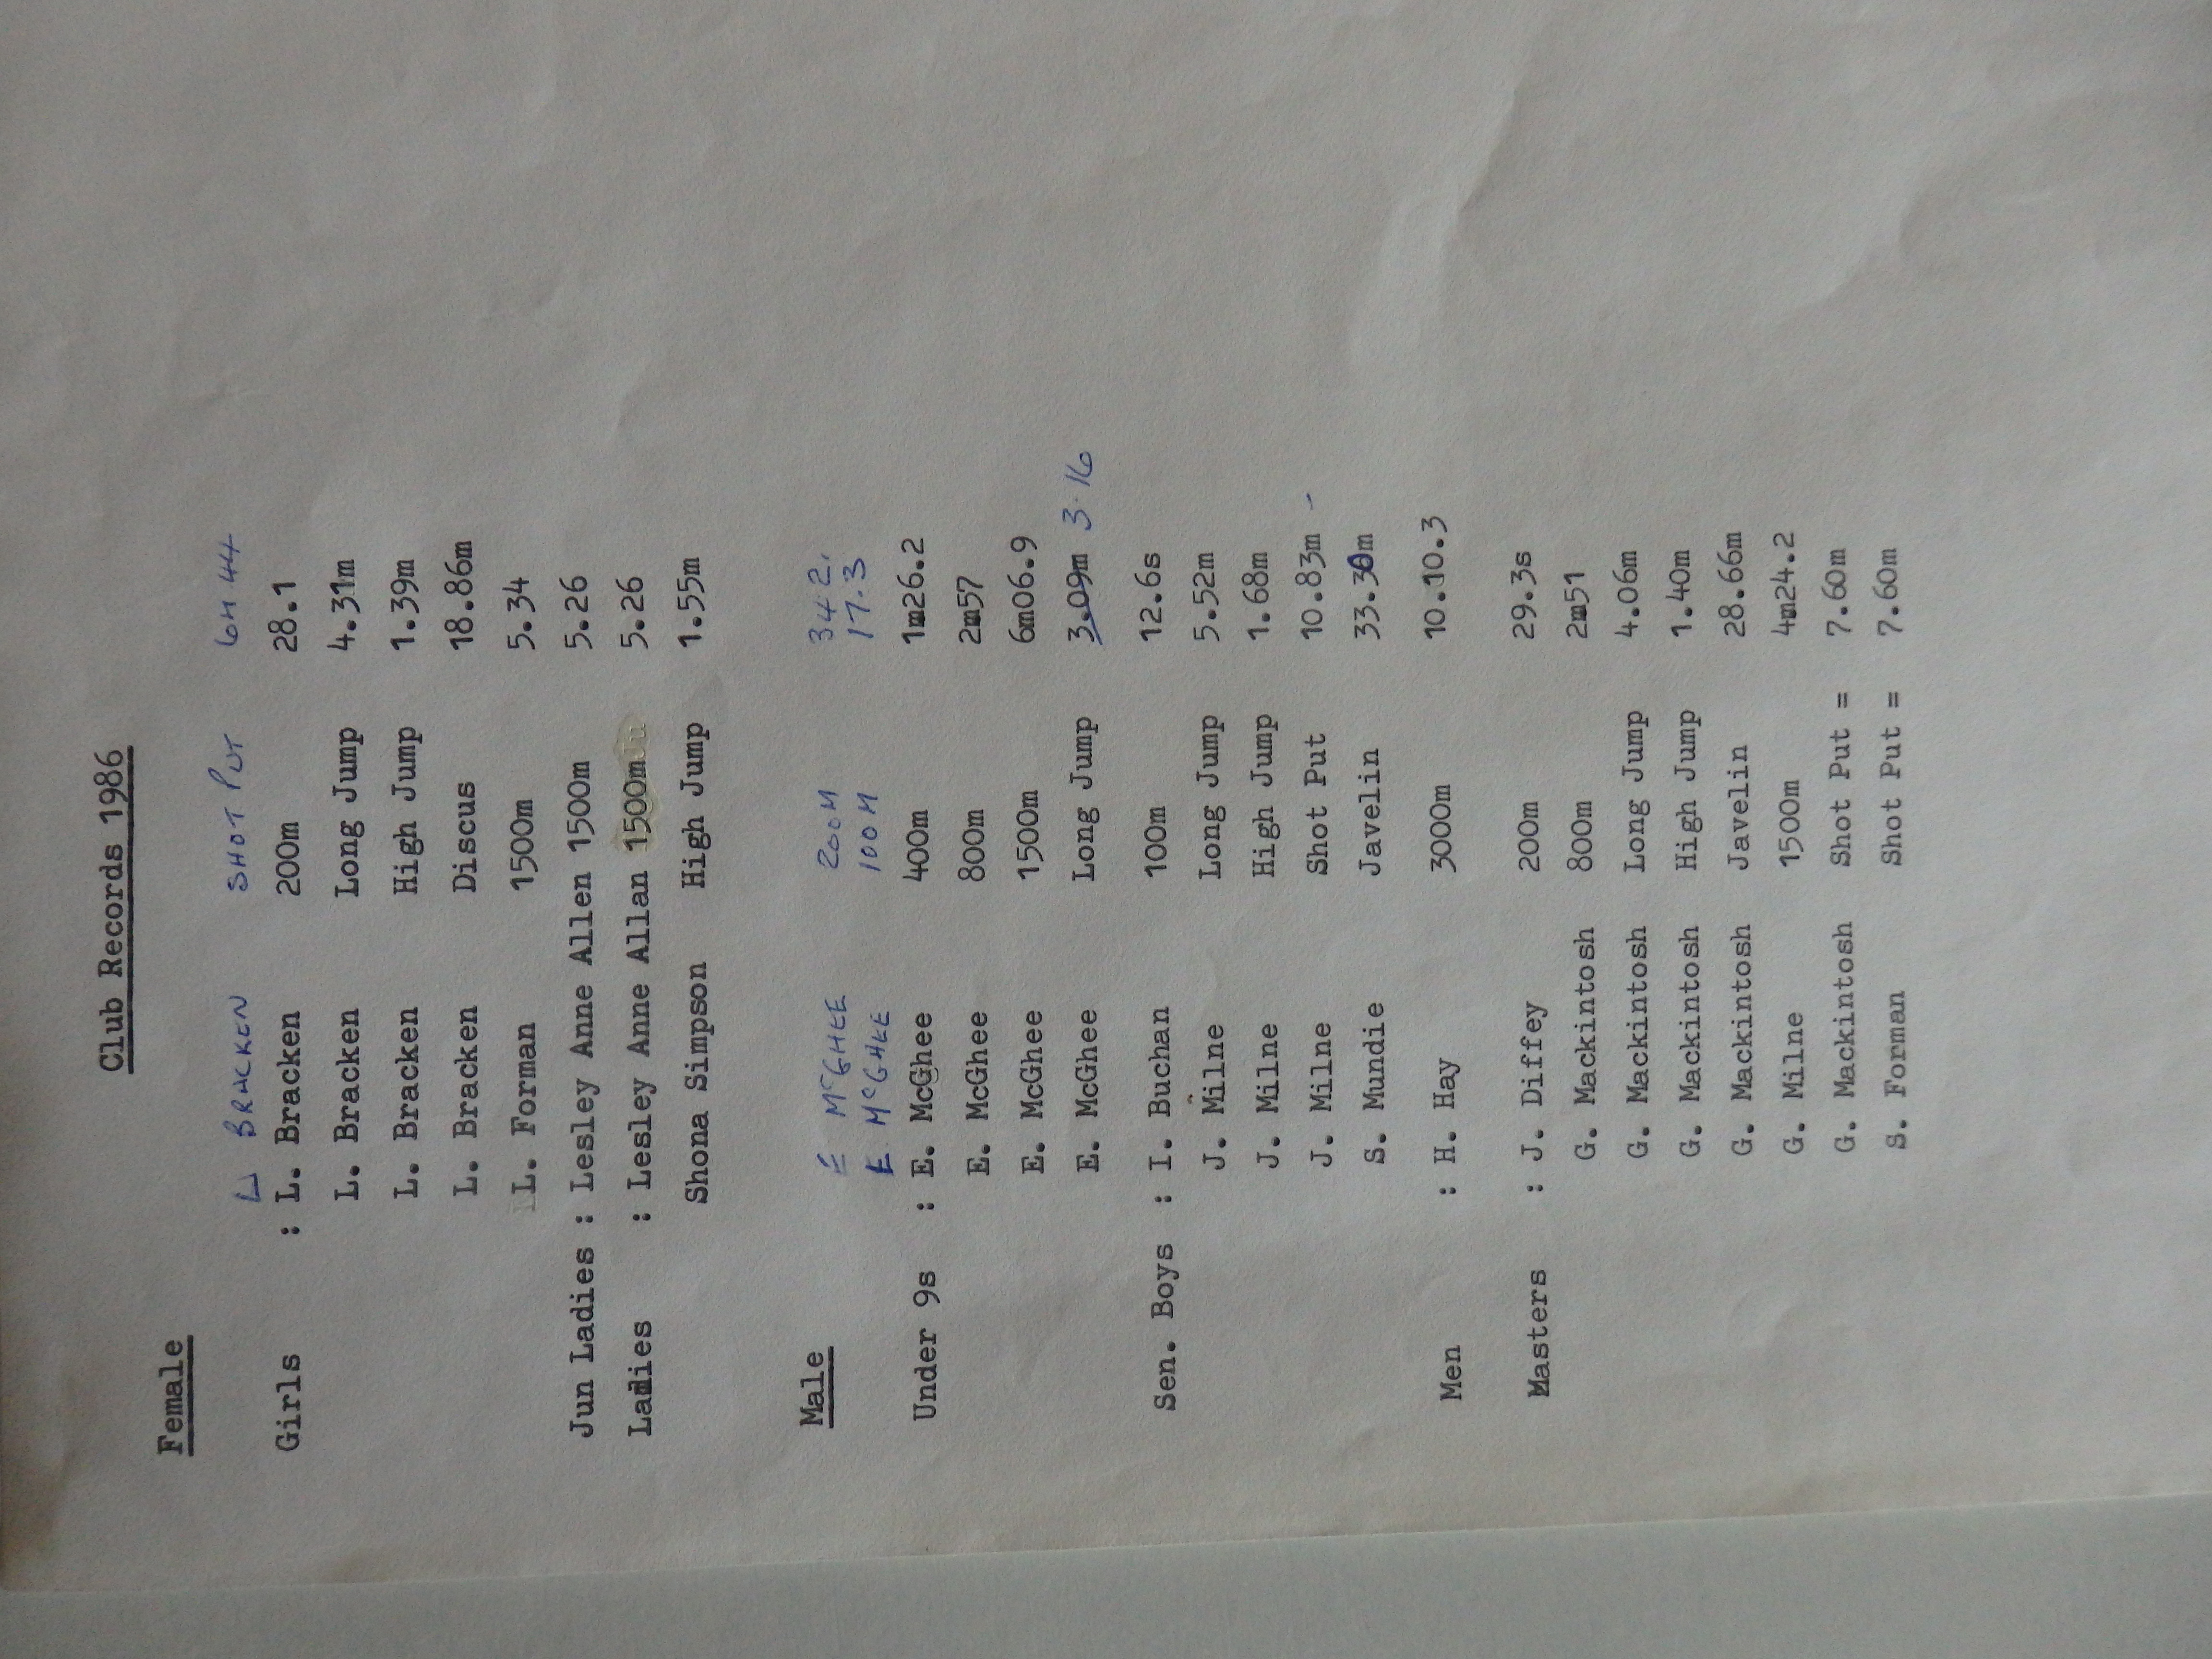 Club Records 1986
Female
L BRACKEN SHOT PUT 6M44
Girls : L. Bracken 200m 28.1
L. Bracken Long Jump 4.31m
L. Bracken High Jump 1.39m
L. Bracken Discus 18.86m
L. Forman 1500m 5.34
Jun Ladies : Lesley Anne Allen 1500m 5.26
Ladies : Lesley Anne Allan 1500m 5.26
Shona Simpson High Jump 1.55m
Male
E McGHEE 200M 34.2.
E McGHEE 100M 17.3
Under 9s : E. McGhee 400m 1m26.2
E. McGhee 800m 2m57
E. McGhee 1500m 6m06.9
E. McGhee Long Jump 3.09m 3.16
Sen. Boys : I. Buchan 100m 12.6s
J. Milne Long Jump 5.52m
J. Milne High Jump 1.68m
J. Milne Shot Put 10.83m -
S. Mundie Javelin
Men : H. Hay 3000m 10.10.3
Masters : J. Diffey 200m 29.3s
G. Mackintosh 800m 2m51
G. Mackintosh Long Jump 4.06m
G. Mackintosh High Jump 1.40m
G. Mackintosh Javelin 28.66m
G. Milne 1500m 4m24.2
G. Mackintosh Shot Put = 7.60m
S. Forman Shot Put = 7.60m